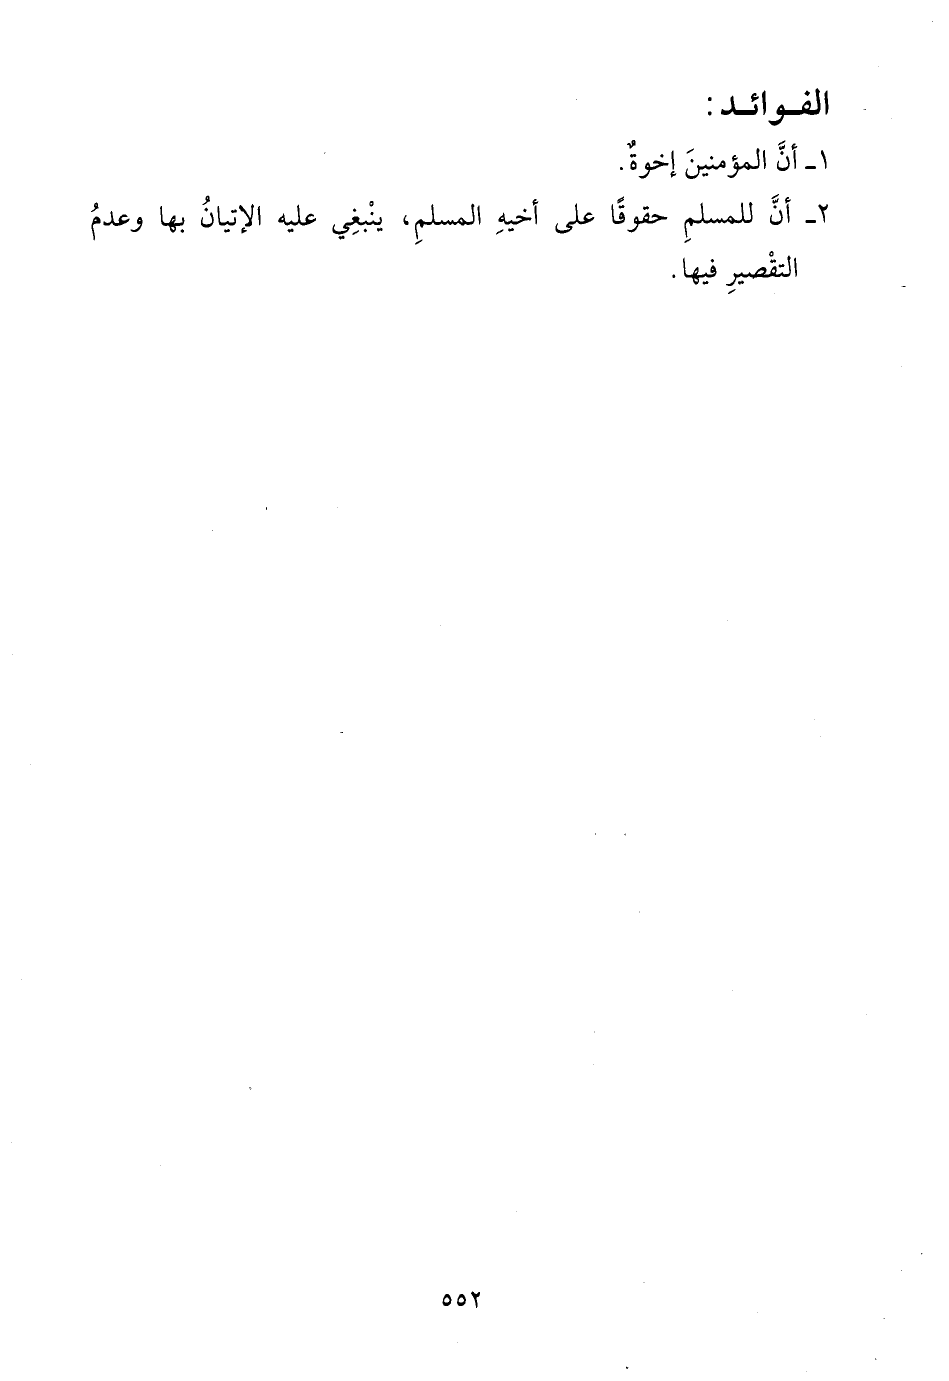 الفـوائـد :
١ـ أنَّ المؤمنينَ إخوةٌ.
٢ـ أنَّ للمسلمِ حقوقًا على أخيهِ المسلمِ، ينْبغِي عليه الإتيانُ بها وعدمُ
التقْصيرِ فيها.
٥٥٢